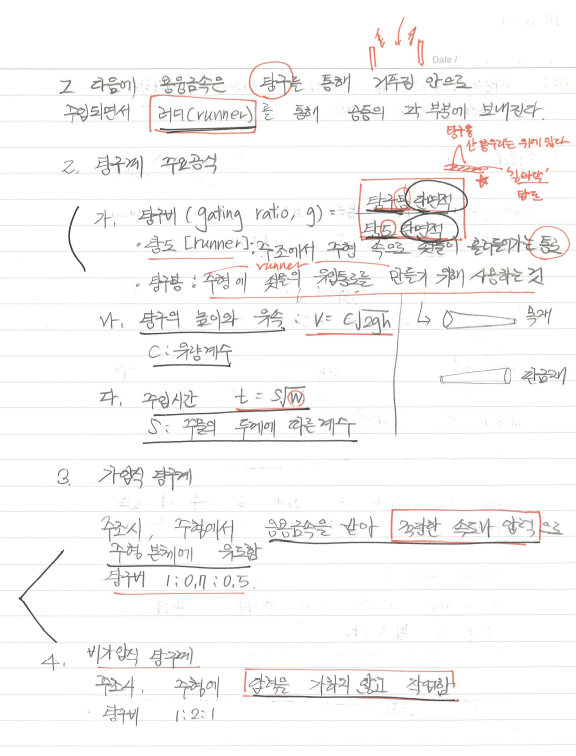 Date /
그 다음에 용융금속은 탕구를 통해 거푸집 안으로
주입되면서 러너(runner)를 통해 공동의 각 부분에 보내진다.
탕구봉
산 봉우리는 위에 있다
2. 탕구계 주요공식
'길바닥'
탕도
가. 탕구비 (gating ratio, g) = 탕구봉 단면적
탕도 단면적
· 탕도 [runner] : 주조에서 주형 속으로 쇳물이 흘러들어가는 통로
runner
· 탕구봉 : 주형에 쇳물의 유입통로를 만들기 위해 사용하는 것
나. 탕구의 높이와 유속 : V = C√2gh
목재
C : 유량계수
합금재
다. 주입시간 t = S√W
S : 주물의 두께에 따른 계수
3. 가압식 탕구계
주조시, 주형에서 용융금속을 받아 적당한 속도나 압력으로
주형 본체에 유도함
탕구비 1 : 0.7 : 0.5
4. 비가압식 탕구계
주조시, 주형에 압력을 가하지 않고 작업함
· 탕구비 1 : 2 : 1